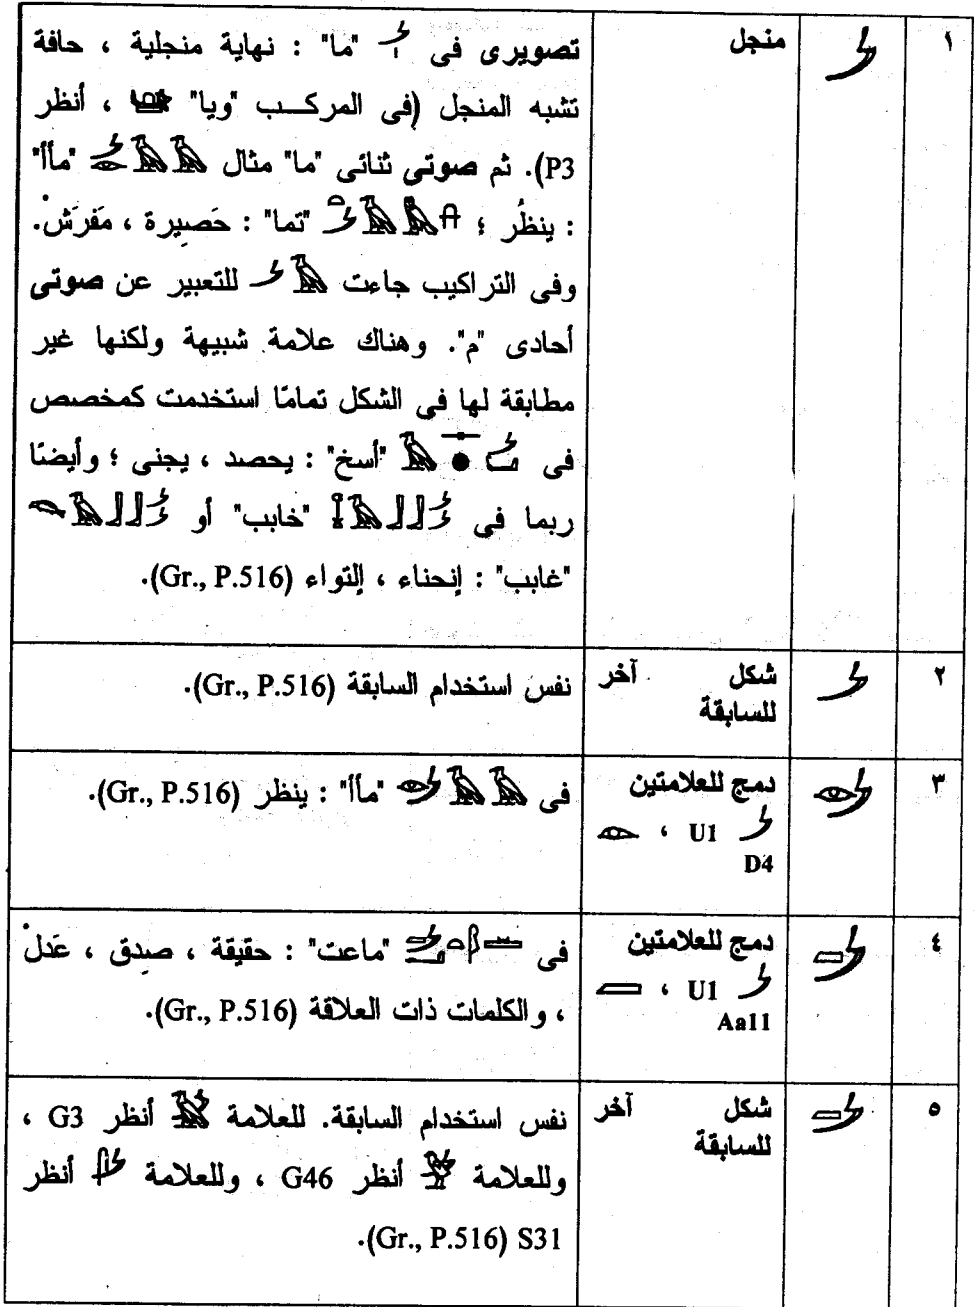 ١ 𓌳 منجل تصويرى فى 𓌳𓏤 "ما" : نهاية منجلية ، حافة
تشبه المنجل (فى المركب "ويا" ، أنظر
P3). ثم صوتى ثنائى "ما" مثال 𓌳𓁹𓄿𓄿 "مأأ"
: ينظُر ؛ "تما" : حَصيرة ، مَفرَش.
وفى التراكيب جاءت 𓌳𓄿 للتعبير عن صوتى
أحادى "م". وهناك علامة شبيهة ولكنها غير
مطابقة لها فى الشكل تمامًا استخدمت كمخصص
فى "أسخ" : يحصد ، يجنى ؛ وأيضًا
ربما فى "خابب" أو
"غابب" : إنحناء ، إلتواء (Gr., P.516).
٢ 𓌴 شكل آخر
للسابقة
نفس استخدام السابقة (Gr., P.516).
٣ 𓌵 دمج للعلامتين
𓌳 U1 ، 𓁹
D4
فى 𓌵𓄿𓄿 "مأأ" : ينظر (Gr., P.516).
٤ 𓌶 دمج للعلامتين
𓌳 U1 ، 𓐙
Aa11
فى "ماعت" : حقيقة ، صدق ، عَدلْ
، والكلمات ذات العلاقة (Gr., P.516).
٥ 𓌷 شكل آخر
للسابقة
نفس استخدام السابقة. للعلامة 𓄿 أنظر G3 ،
وللعلامة أنظر G46 ، وللعلامة أنظر
S31 (Gr., P.516).